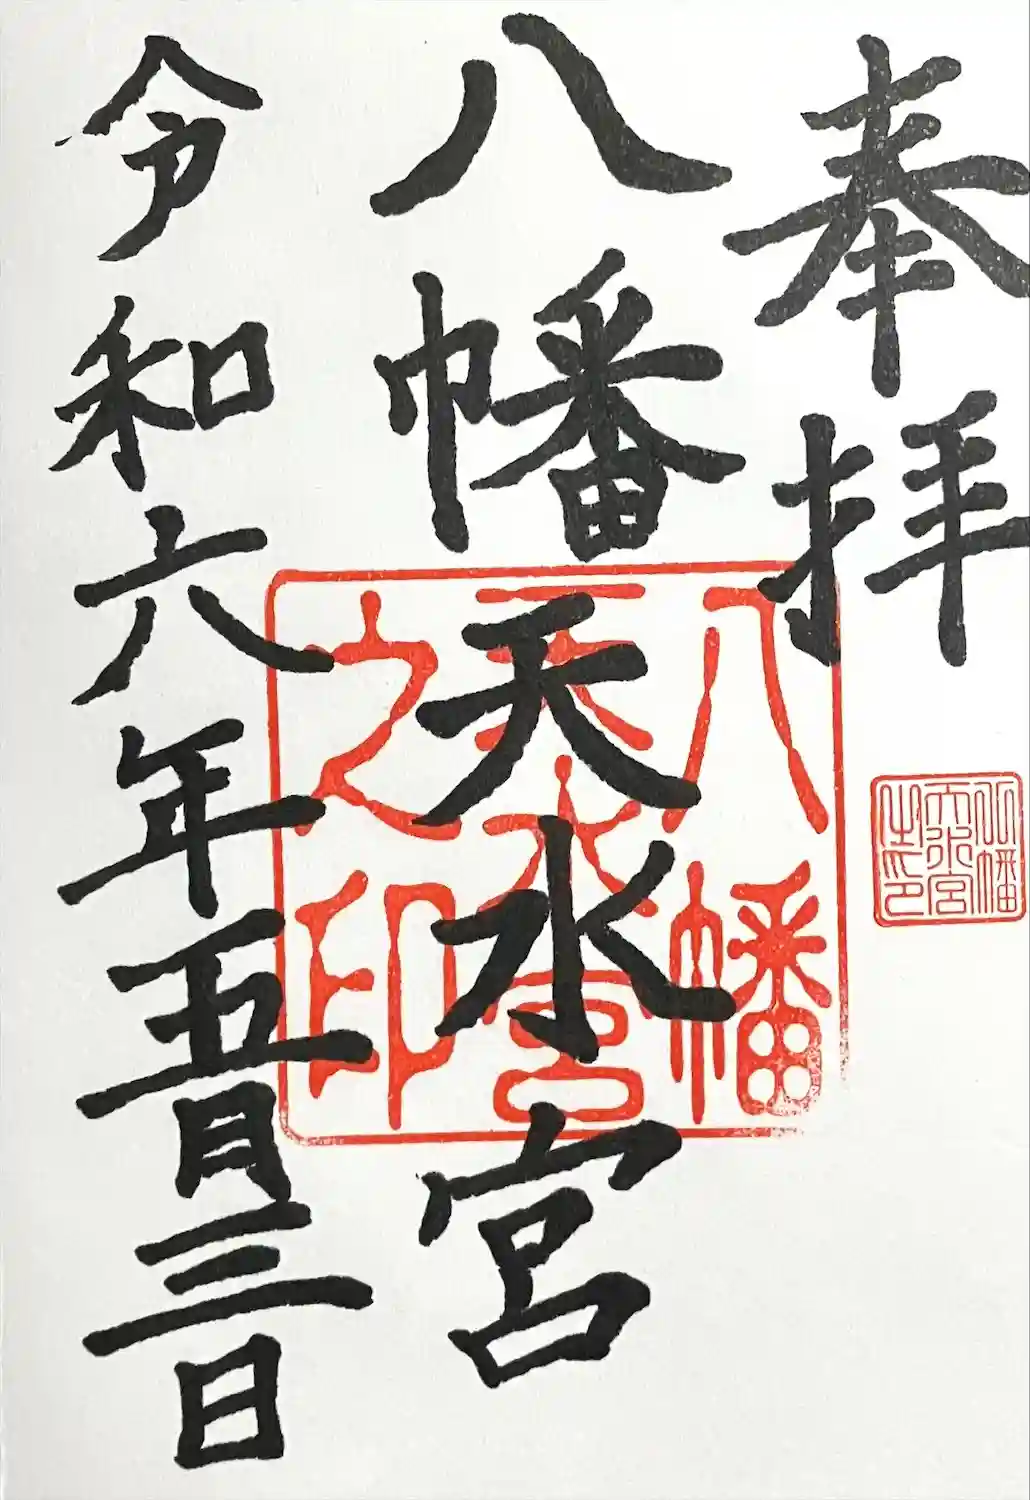 奉拝
八幡天水宮
令和六年五月三日
八幡
天水宮
之印
八幡
天水宮
之印